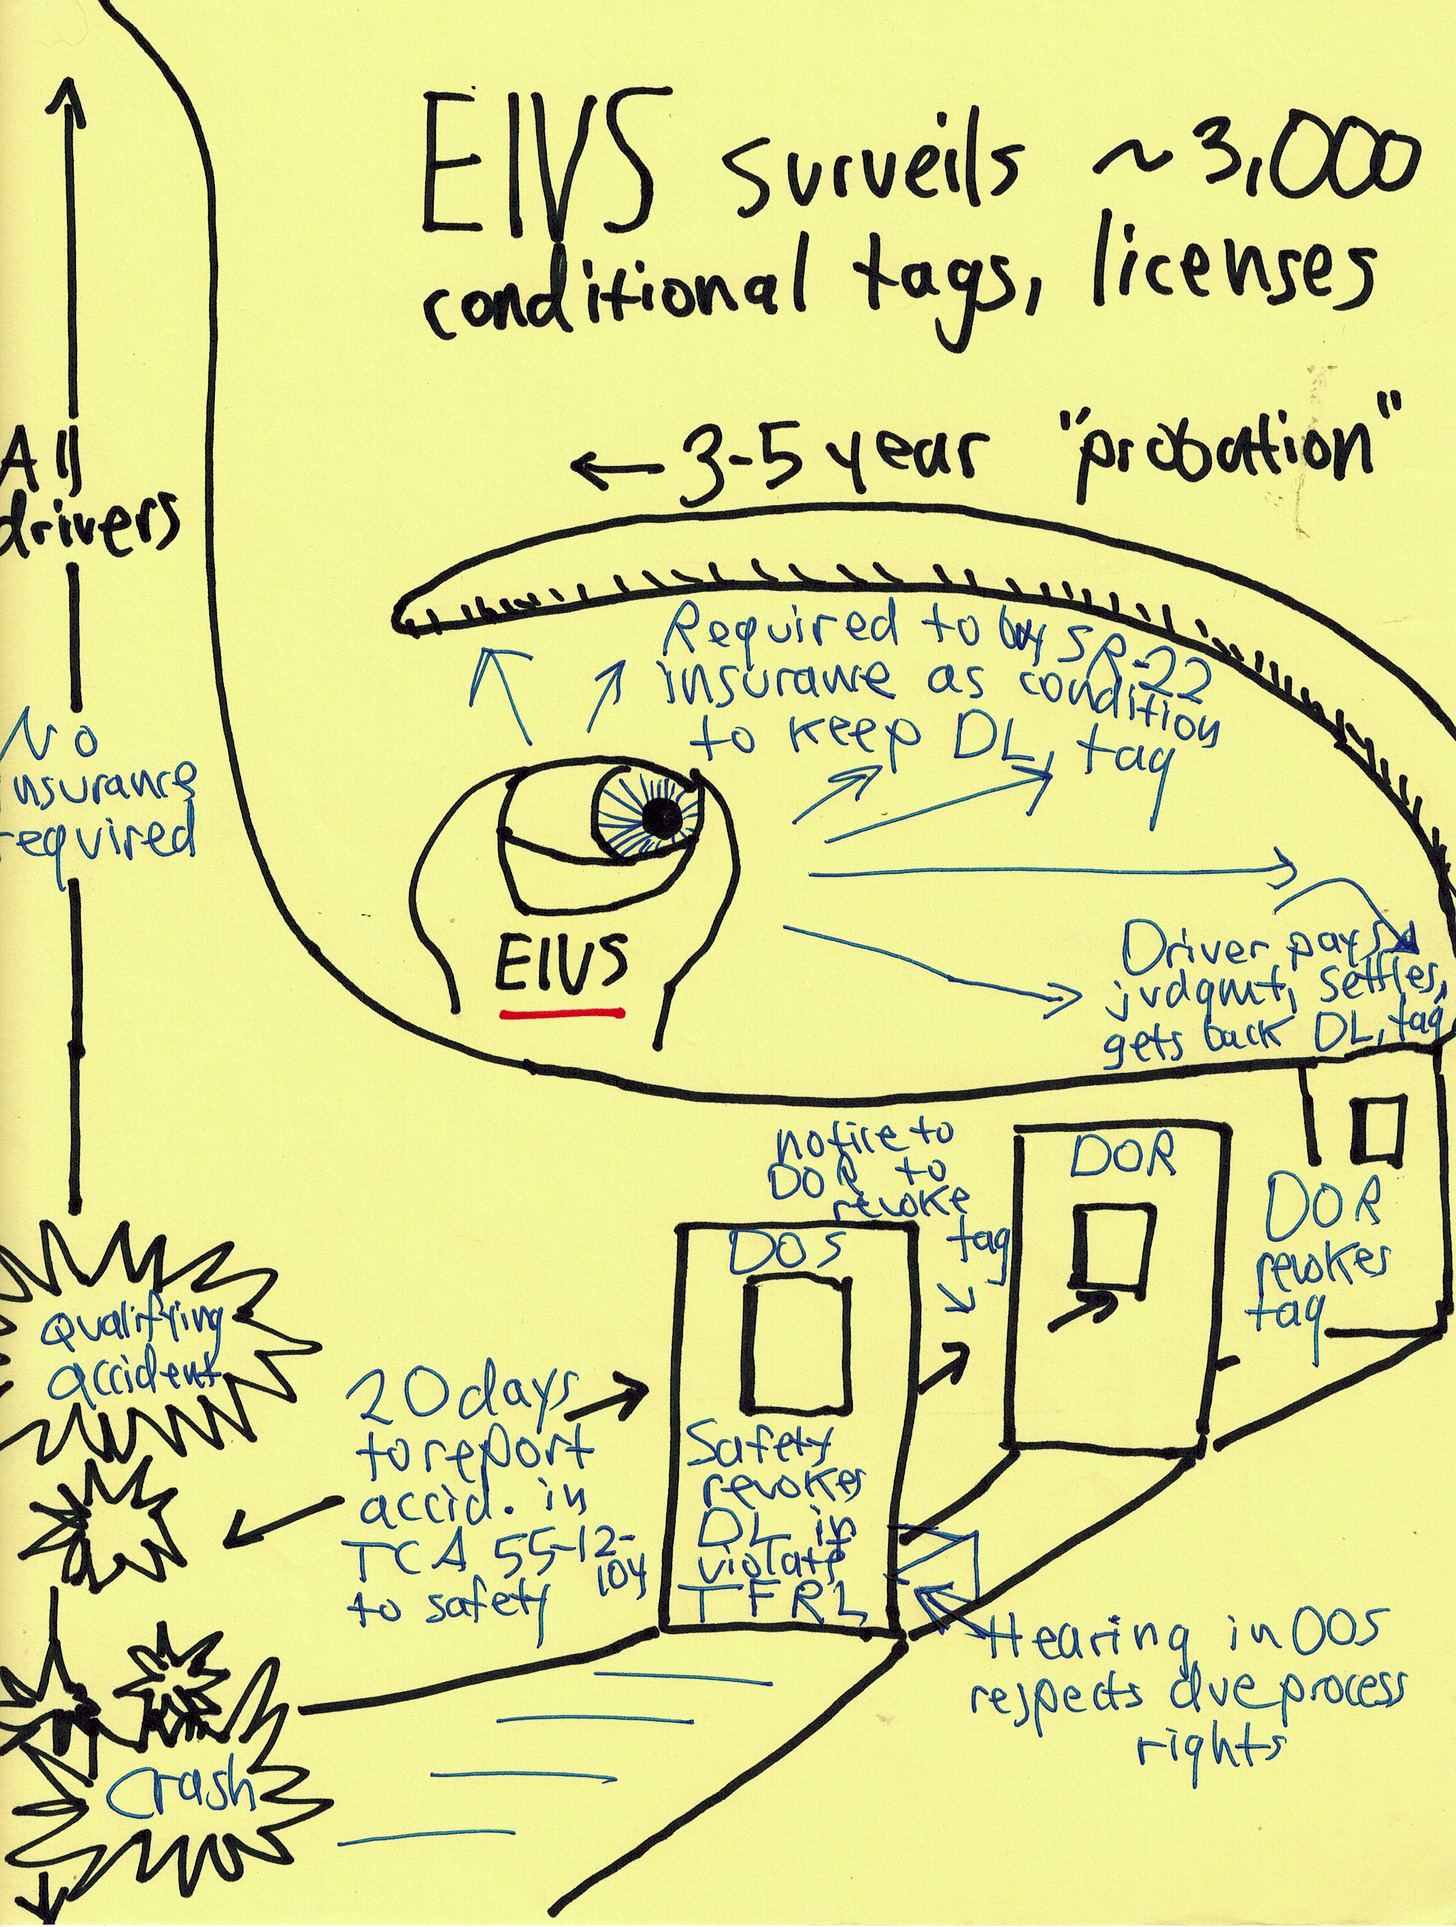 EIVS surveils ~3,000
conditional tags, licenses
← 3-5 year "probation"
All
drivers
Required to buy SR-22
insurance as condition
to keep DL, tag
No
insurance
required
EIVS
Driver pays
judgmt, settles,
gets back DL, tag
notice to
DOR to
revoke
tag
DOR
DOR
revokes
tag
DOS
Qualifying
accident
20 days
to report
accid. in
TCA 55-12-
104
to safety
Safety
revokes
DL in
violatn
TFRL
Hearing in DOS
respects due process
rights
Crash